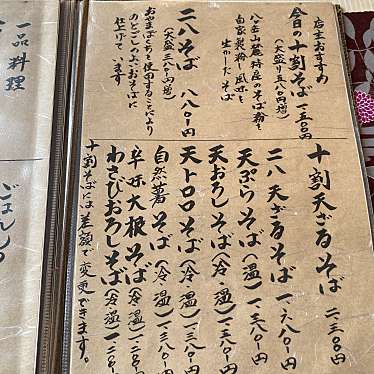 店主おすすめ
今日の十割そば 一、五〇〇円
(大盛り三八〇円増)
八ヶ岳山麓特産のそば粉を
自家製粉し風味を
生かしたそば
二八そば 八八〇円
(大盛三八〇円増)
おやまぼくちを使用することにより
のどごしのよいおそばに
仕上げています
十割天ざるそば 二、三〇〇円
二八天ざるそば 一、六八〇円
天ぷらそば(温) 一、三八〇円
天おろしそば(冷・温) 一、三八〇円
天トロロそば(冷・温)
自然薯そば(冷・温) 一、三八〇円
辛味大根そば(冷)
わさびおろしそば(冷・温)
十割そばには差額で変更できます。
一品料理